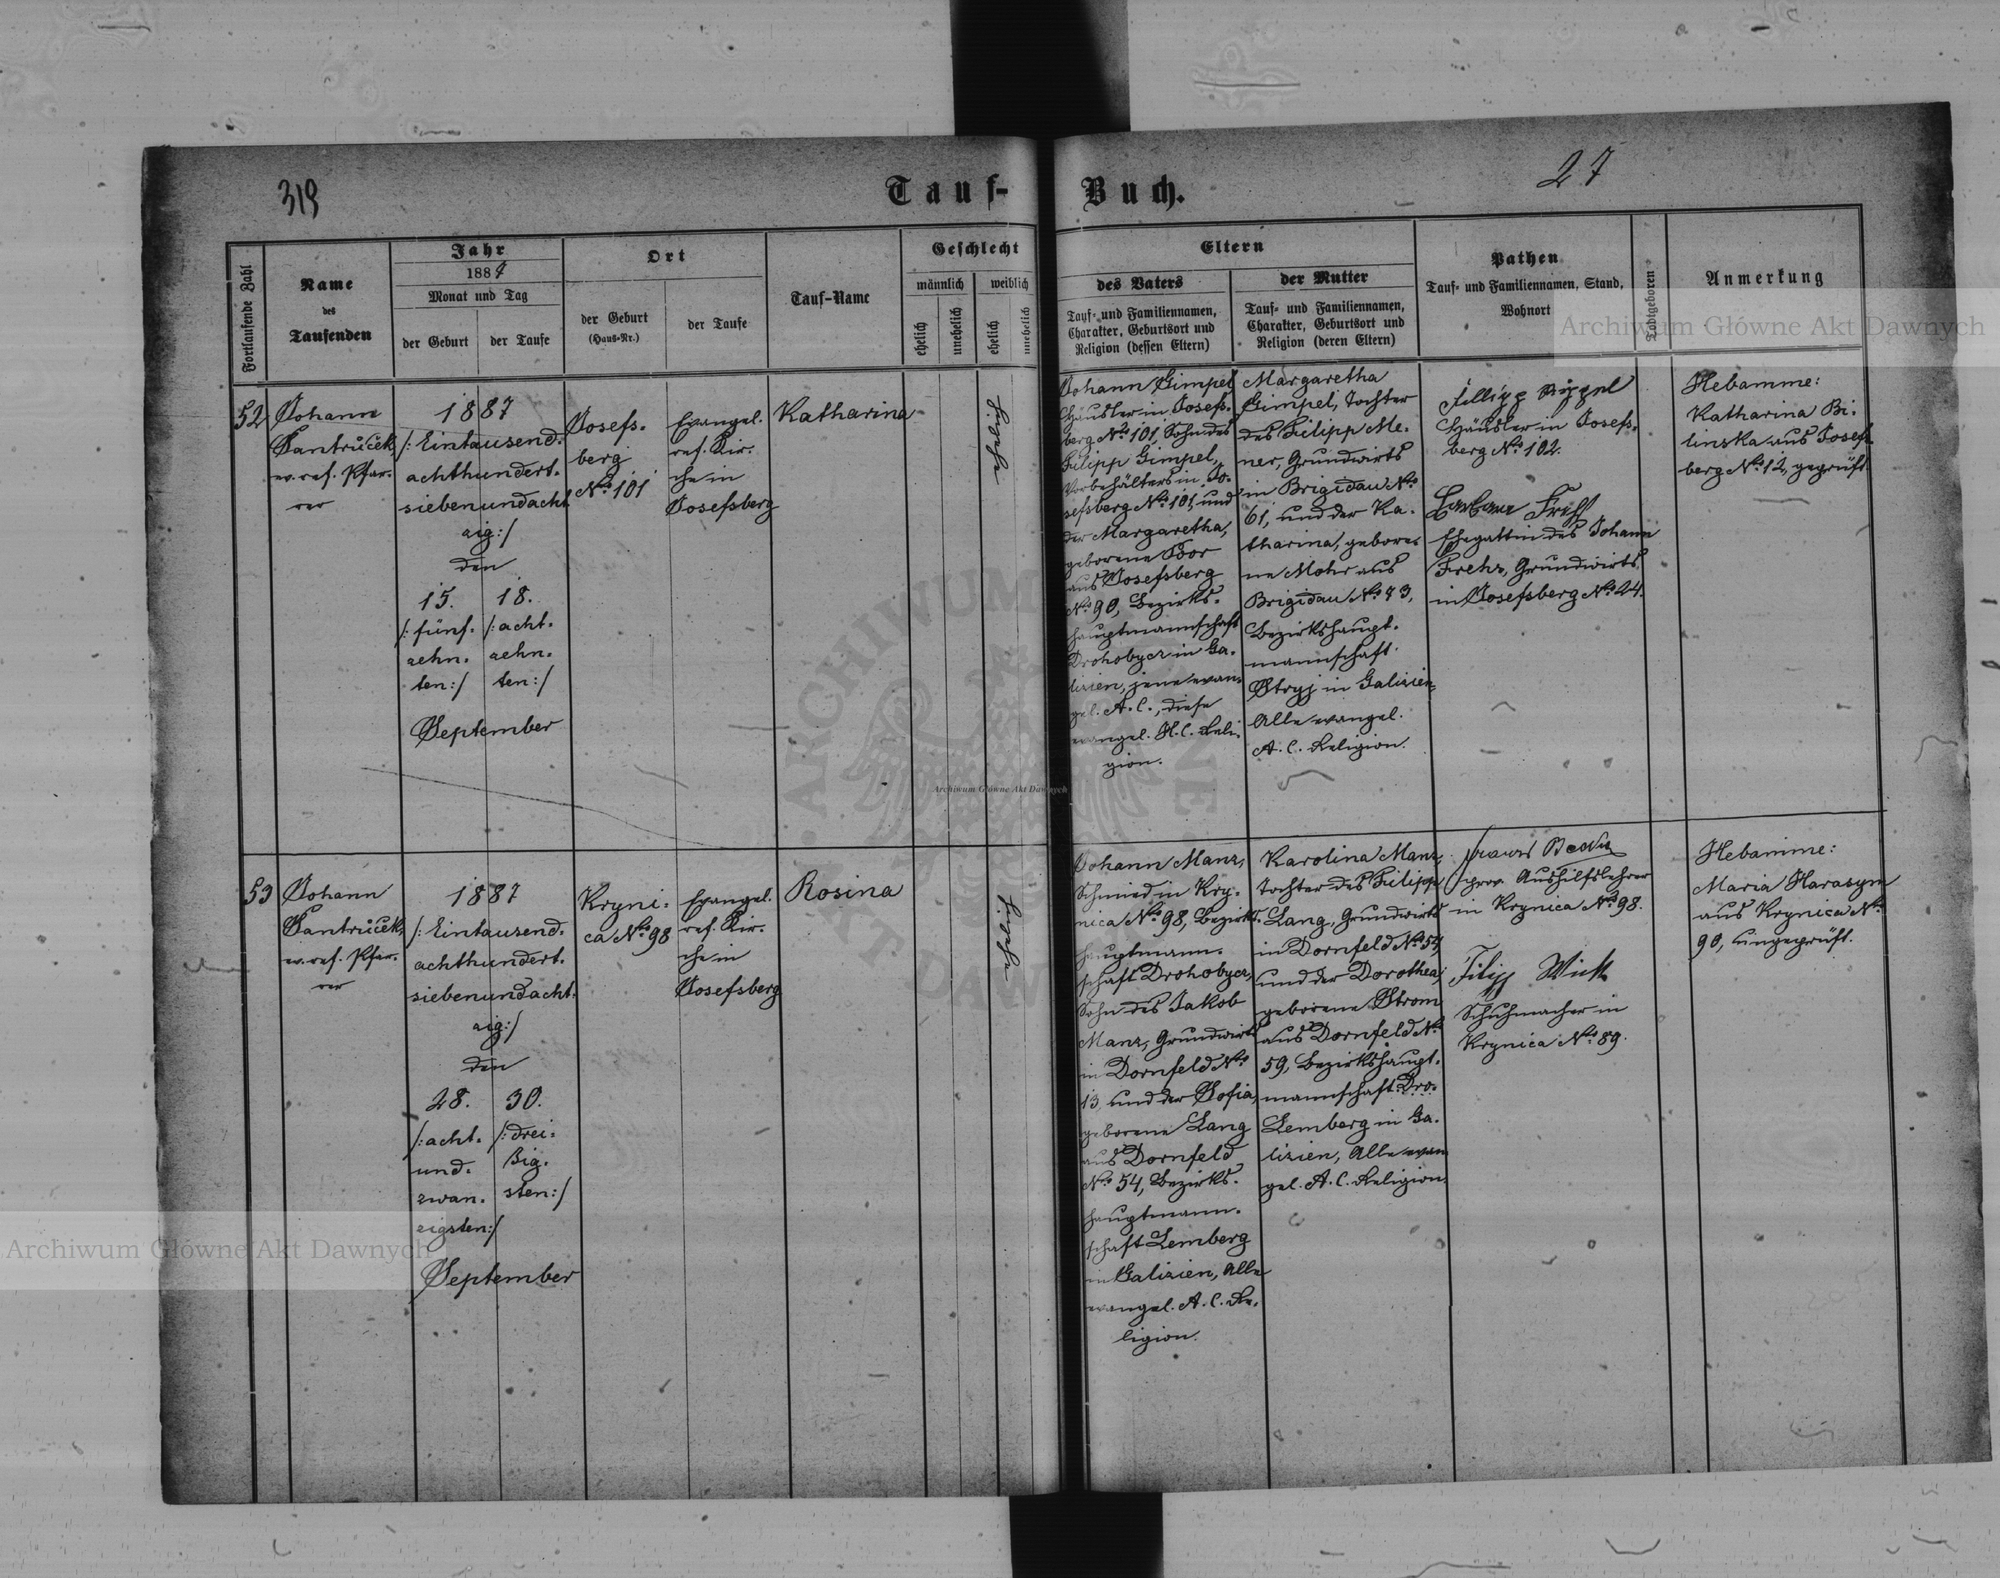 319
Tauf-
Buch.
27
Fortlaufende Zahl
Name
des
Taufenden
Jahr
1887
Monat und Tag
der Geburt
der Taufe
Ort
der Geburt
(Haus-Nr.)
der Taufe
Tauf-Name
Geschlecht
männlich
weiblich
ehelich
unehelich
ehelich
unehelich
Eltern
des Vaters
Tauf- und Familiennamen,
Charakter, Geburtsort und
Religion (dessen Eltern)
der Mutter
Tauf- und Familiennamen,
Charakter, Geburtsort und
Religion (deren Eltern)
Pathen
Tauf- und Familiennamen, Stand,
Wohnort
Todtgeboren
Anmerkung
52
Johann
Jantruček,
ev. ref. Pfar-
rer
1887
/: Eintausend-
achthundert-
siebenundacht-
zig :/
den
15.
/: fünf-
zehn-
ten :/
18.
/: acht-
zehn-
ten :/
September
Josefs-
berg
No. 101
Evangel.
ref. Kir-
che in
Josefsberg
Katharina
eheliche
Johann Gimpel
Häusler in Josefs-
berg No. 101, Sohn des
Filipp Gimpel,
Vorbehälters in Jo-
sefsberg No. 101, und
der Margaretha,
geborene Bor
aus Josefsberg
No. 90, Bezirks-
hauptmannschaft
Drohobycz in Ga-
lizien, jene evan-
gel. A. C., diese
evangel. H. C. Reli-
gion.
Margaretha
Gimpel, Tochter
des Filipp Me-
ner, Grundwirts
in Brigidau No.
61, und der Ka-
tharina, gebore-
ne Mohr aus
Brigidau No. 73,
Bezirkshaupt-
mannschaft
Stryj in Galizien,
Alle evangel.
A. C. Religion.
Fillipp
Häusler in Josefs-
berg No. 102.
Ehegattin des Johann
Frehr, Grundwirts
in Josefsberg No. 24.
Hebamme:
Katharina Bi-
linska aus Josefs-
berg No. 12, geprüft.
53
Johann
Jantruček,
ev. ref. Pfar-
rer
1887
/: Eintausend-
achthundert-
siebenundacht-
zig :/
den
28.
/: acht-
und-
zwan-
zigsten :/
30.
/: drei-
ßig-
sten :/
September
Kryni-
ca No. 98
Evangel.
ref. Kir-
che in
Josefsberg
Rosina
eheliche
Johann Manz,
Schmied in Kry-
nica No. 98, Bezirks-
hauptmann-
schaft Drohobycz,
Sohn des Jakob
Manz, Grundwirts
in Dornfeld No.
13, und der Sofia,
geborene Lang
aus Dornfeld
No. 54, Bezirks-
hauptmann-
schaft Lemberg
in Galizien, Alle
evangel. A. C. Re-
ligion.
Karolina Manz,
Tochter des Filipp
Lang, Grundwirts
in Dornfeld No. 54,
und der Dorothea,
geborene Strom
aus Dornfeld No.
59, Bezirkshaupt-
mannschaft Dro-
Lemberg in Ga-
lizien, Alle evan-
gel. A. C. Religion.
prov. Aushilfslehrer
in Krynica No. 98.
Filipp Wick
Schuhmacher in
Krynica No. 89.
Hebamme:
Maria Harasym
aus Krynica No.
90, ungeprüft.
Archiwum Główne Akt Dawnych
Archiwum Główne Akt Dawnych
Archiwum Główne Akt Dawnych